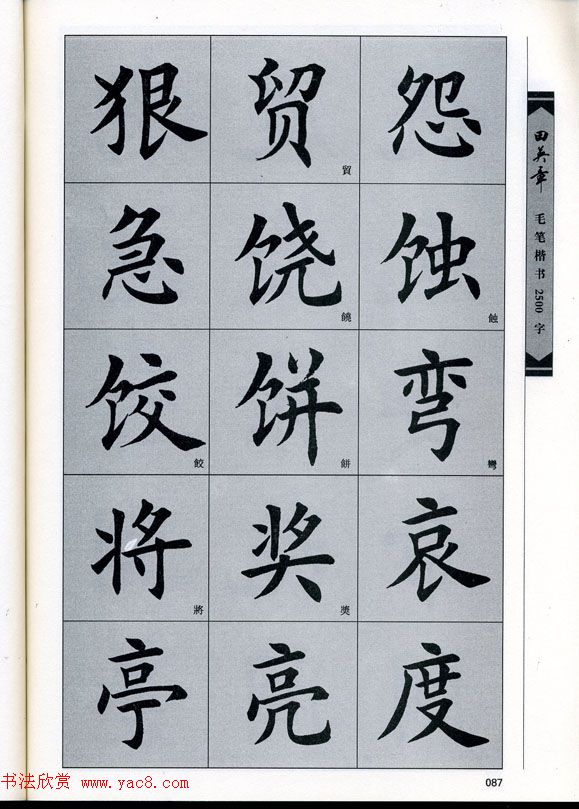 狠 贸 貿 怨
急 饶 饒 蚀 蝕
饺 餃 饼 餅 弯 彎
将 將 奖 奬 哀
亭 亮 度
田英章
毛笔楷书2500字
书法欣赏 www.yac8.com
087